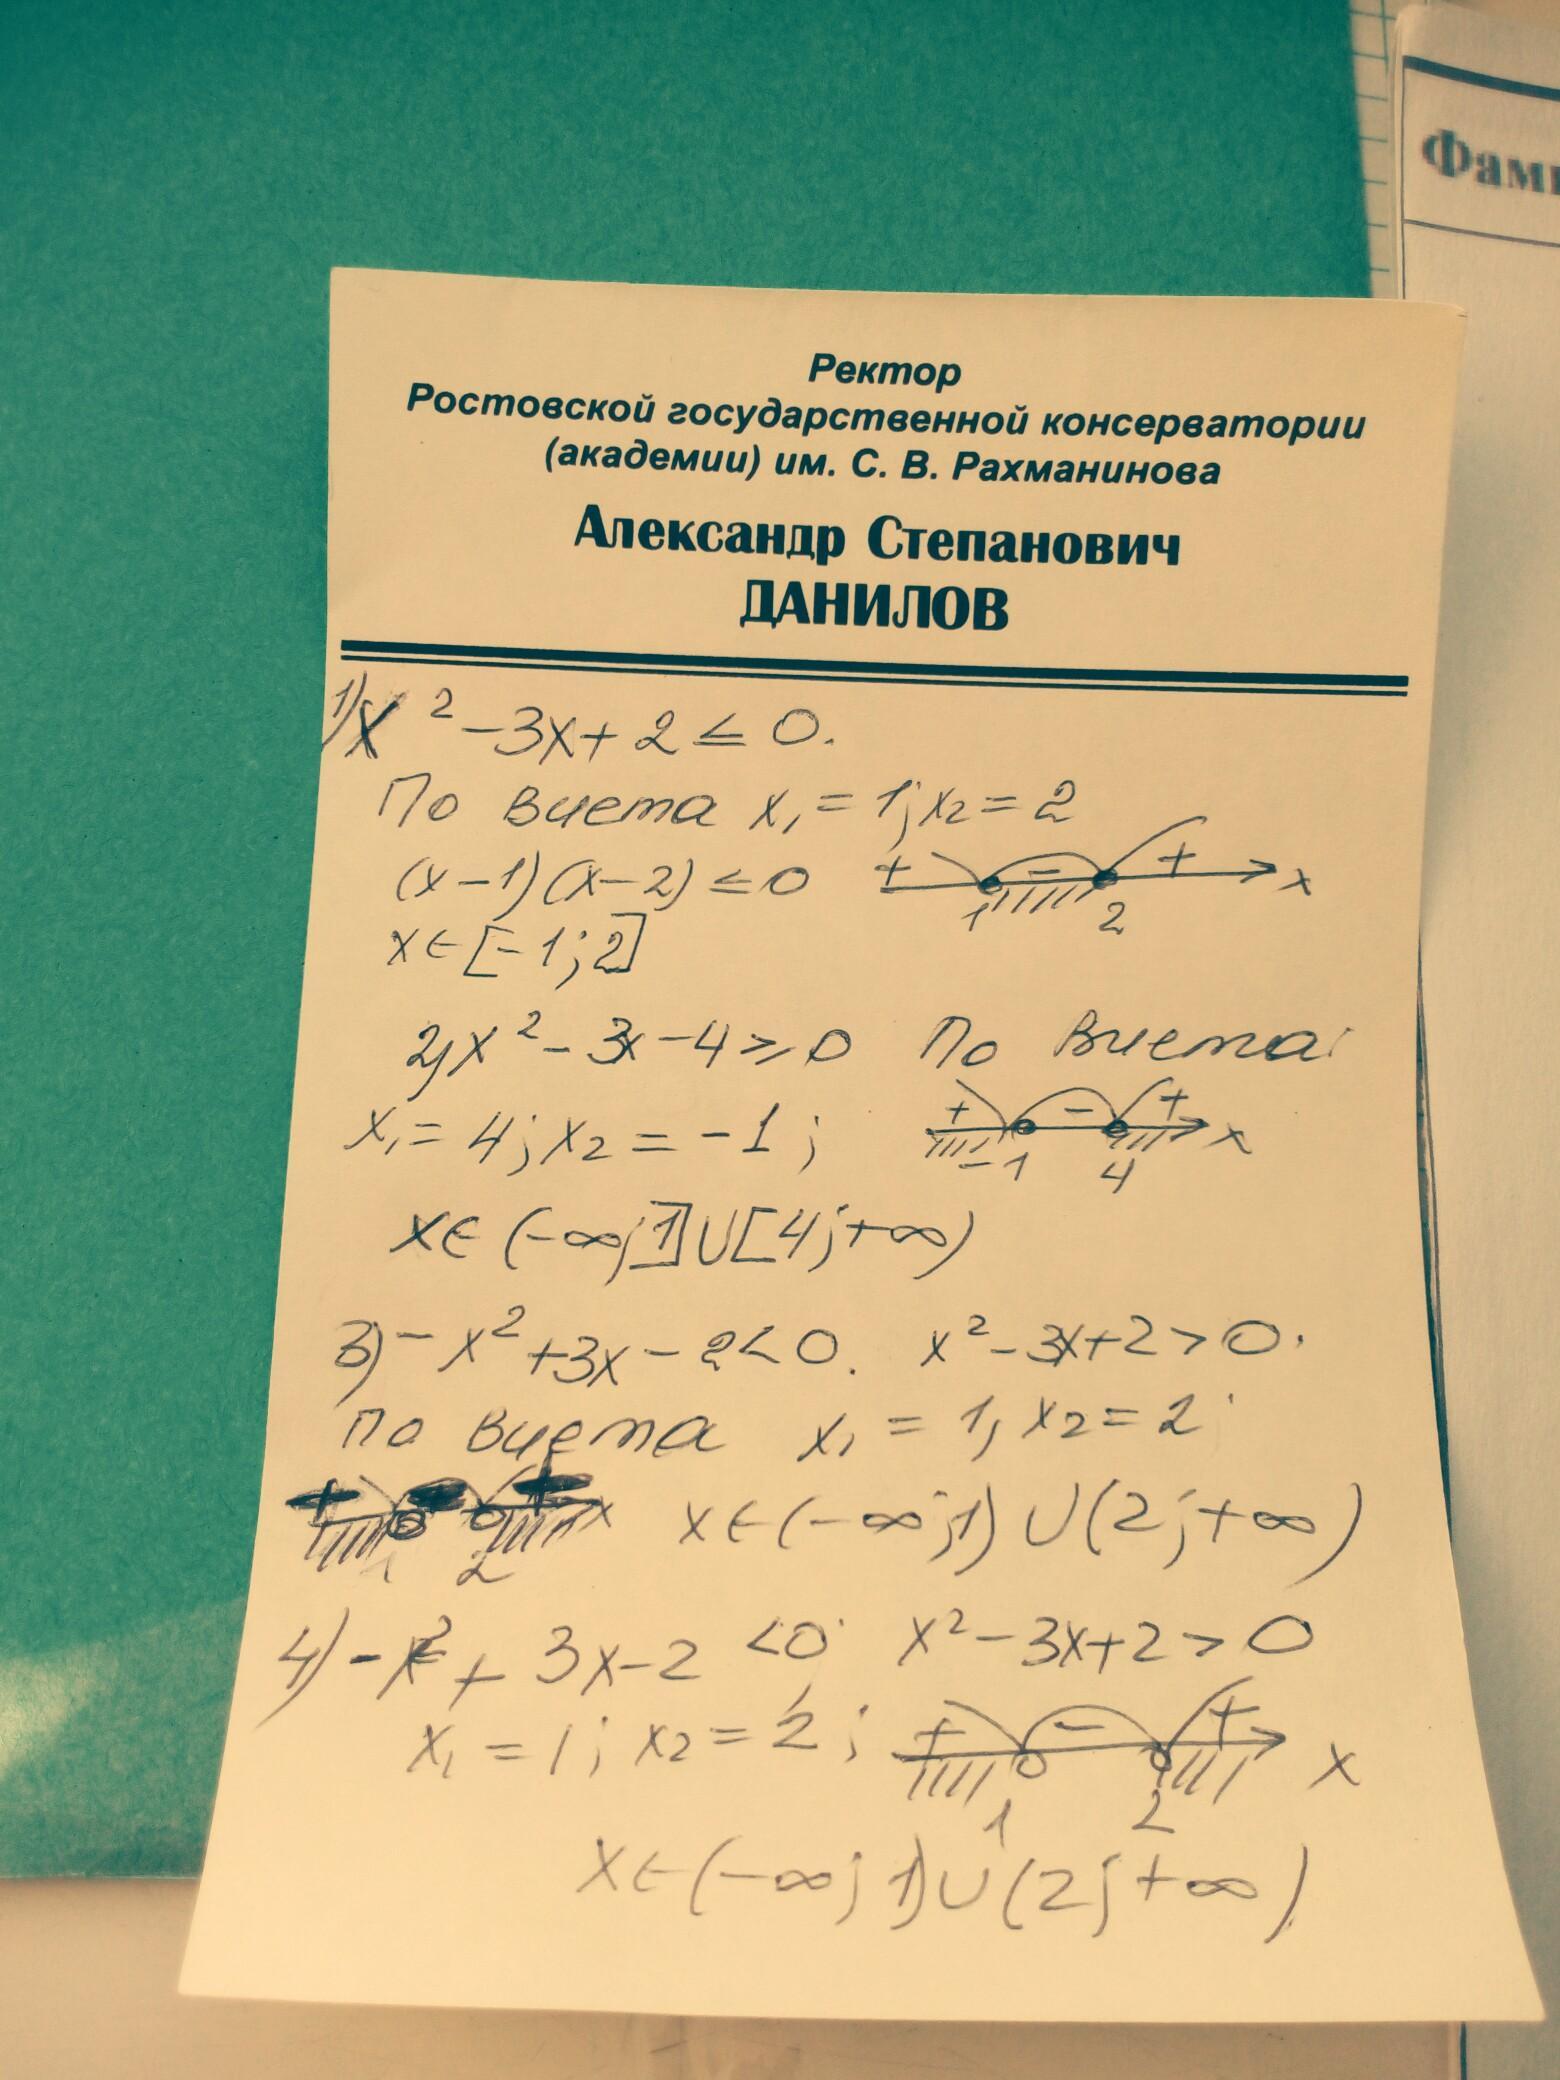 Фами
Ректор
Ростовской государственной консерватории
(академии) им. С. В. Рахманинова
Александр Степанович
ДАНИЛОВ
1) x² - 3x + 2 ≤ 0.
По Виета x₁ = 1; x₂ = 2
(x - 1)(x - 2) ≤ 0 + - + x
1 2
x ∈ [-1; 2]
2) x² - 3x - 4 ≥ 0 По Виета:
x₁ = 4; x₂ = -1; + - + x
-1 4
x ∈ (-∞; 1] ∪ [4; +∞)
3) -x² + 3x - 2 < 0. x² - 3x + 2 > 0.
По Виета x₁ = 1, x₂ = 2
+ + x x ∈ (-∞; 1) ∪ (2; +∞)
1 2
4) -x² + 3x - 2 < 0 x² - 3x + 2 > 0
x₁ = 1; x₂ = 2; + - + x
1 2
x ∈ (-∞; 1) ∪ (2; +∞)